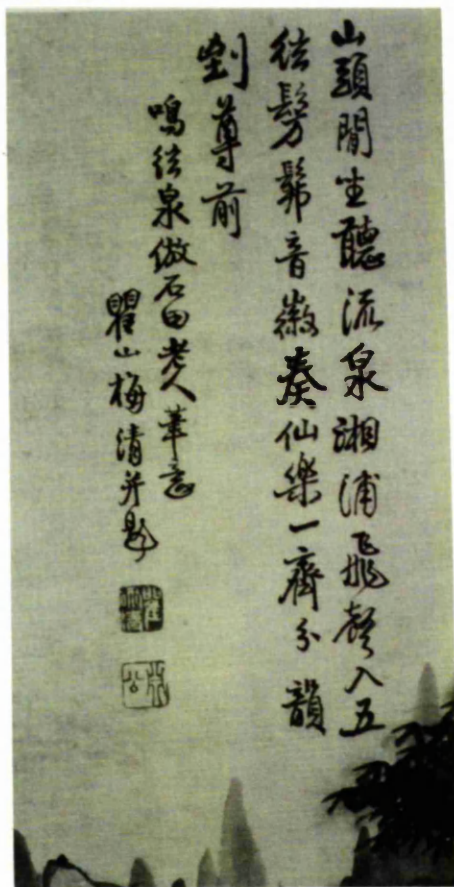 山頭閒坐聽流泉湘浦飛聲入五
絃髣髴音徽奏仙樂一齊分韻
到尊前
鳴絃泉倣石田老人筆意
瞿山梅清并題